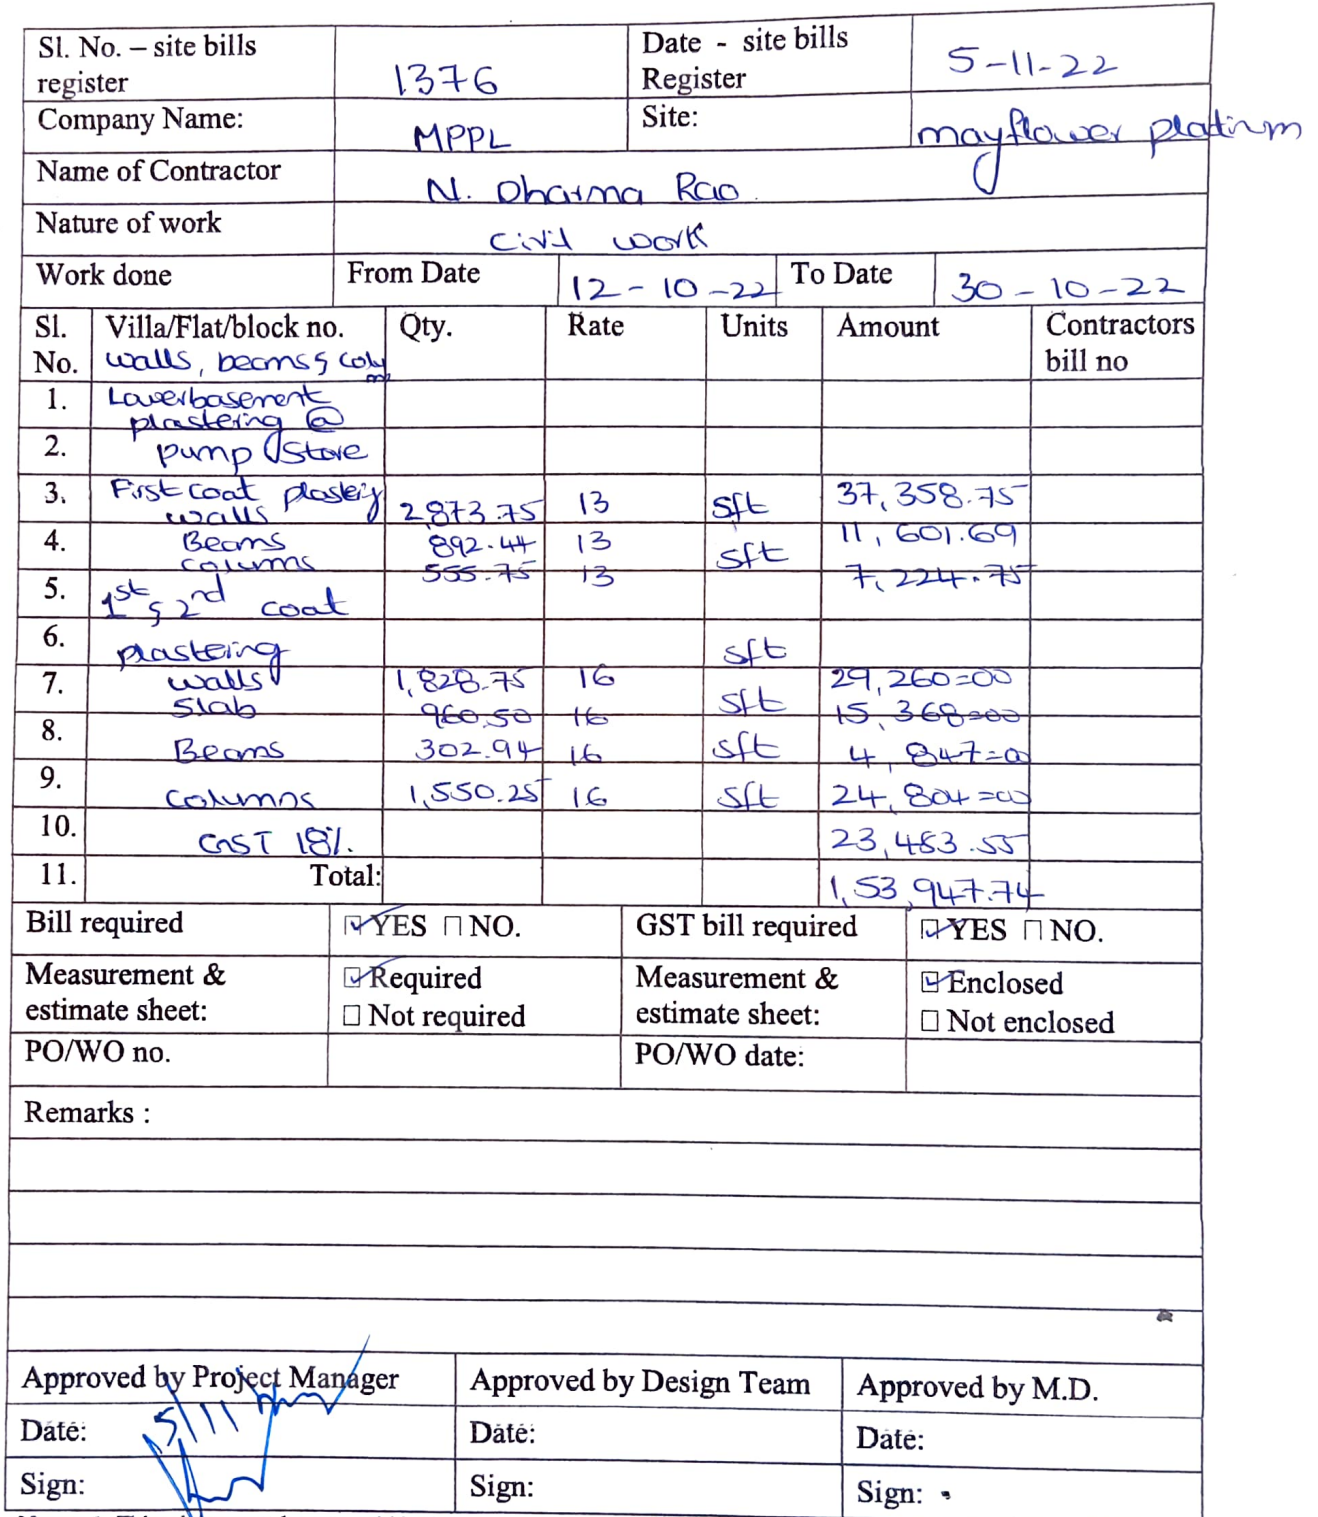 Sl. No. – site bills register 1376 Date - site bills Register 5-11-22
Company Name: MPPL Site: mayflower platinum
Name of Contractor N. Dharma Rao
Nature of work civil work
Work done From Date 12-10-22 To Date 30-10-22
Sl. No. Villa/Flat/block no. Qty. Rate Units Amount Contractors bill no
walls, beams & colum
1. Lowerbasement
plastering @
2. pump store
3. First coat plastering
walls 2,873.75 13 sft 37,358.75
4. Beams 892.44 13 sft 11,601.69
columns 555.75 13 7,224.75
5. 1st & 2nd coat
6. plastering sft
7. walls 1,828.75 16 29,260=00
Slab 960.50 16 sft 15,368=00
8. Beams 302.94 16 sft 4,847=00
9. columns 1,550.25 16 sft 24,804=00
10. GST 18%. 23,483.55
11. Total: 1,53,947.74
Bill required ☑ YES ☐ NO. GST bill required ☑ YES ☐ NO.
Measurement & estimate sheet: ☑ Required ☐ Not required Measurement & estimate sheet: ☑ Enclosed ☐ Not enclosed
PO/WO no. PO/WO date:
Remarks :
Approved by Project Manager Approved by Design Team Approved by M.D.
Date: 5/11 Date: Date:
Sign: Sign: Sign: